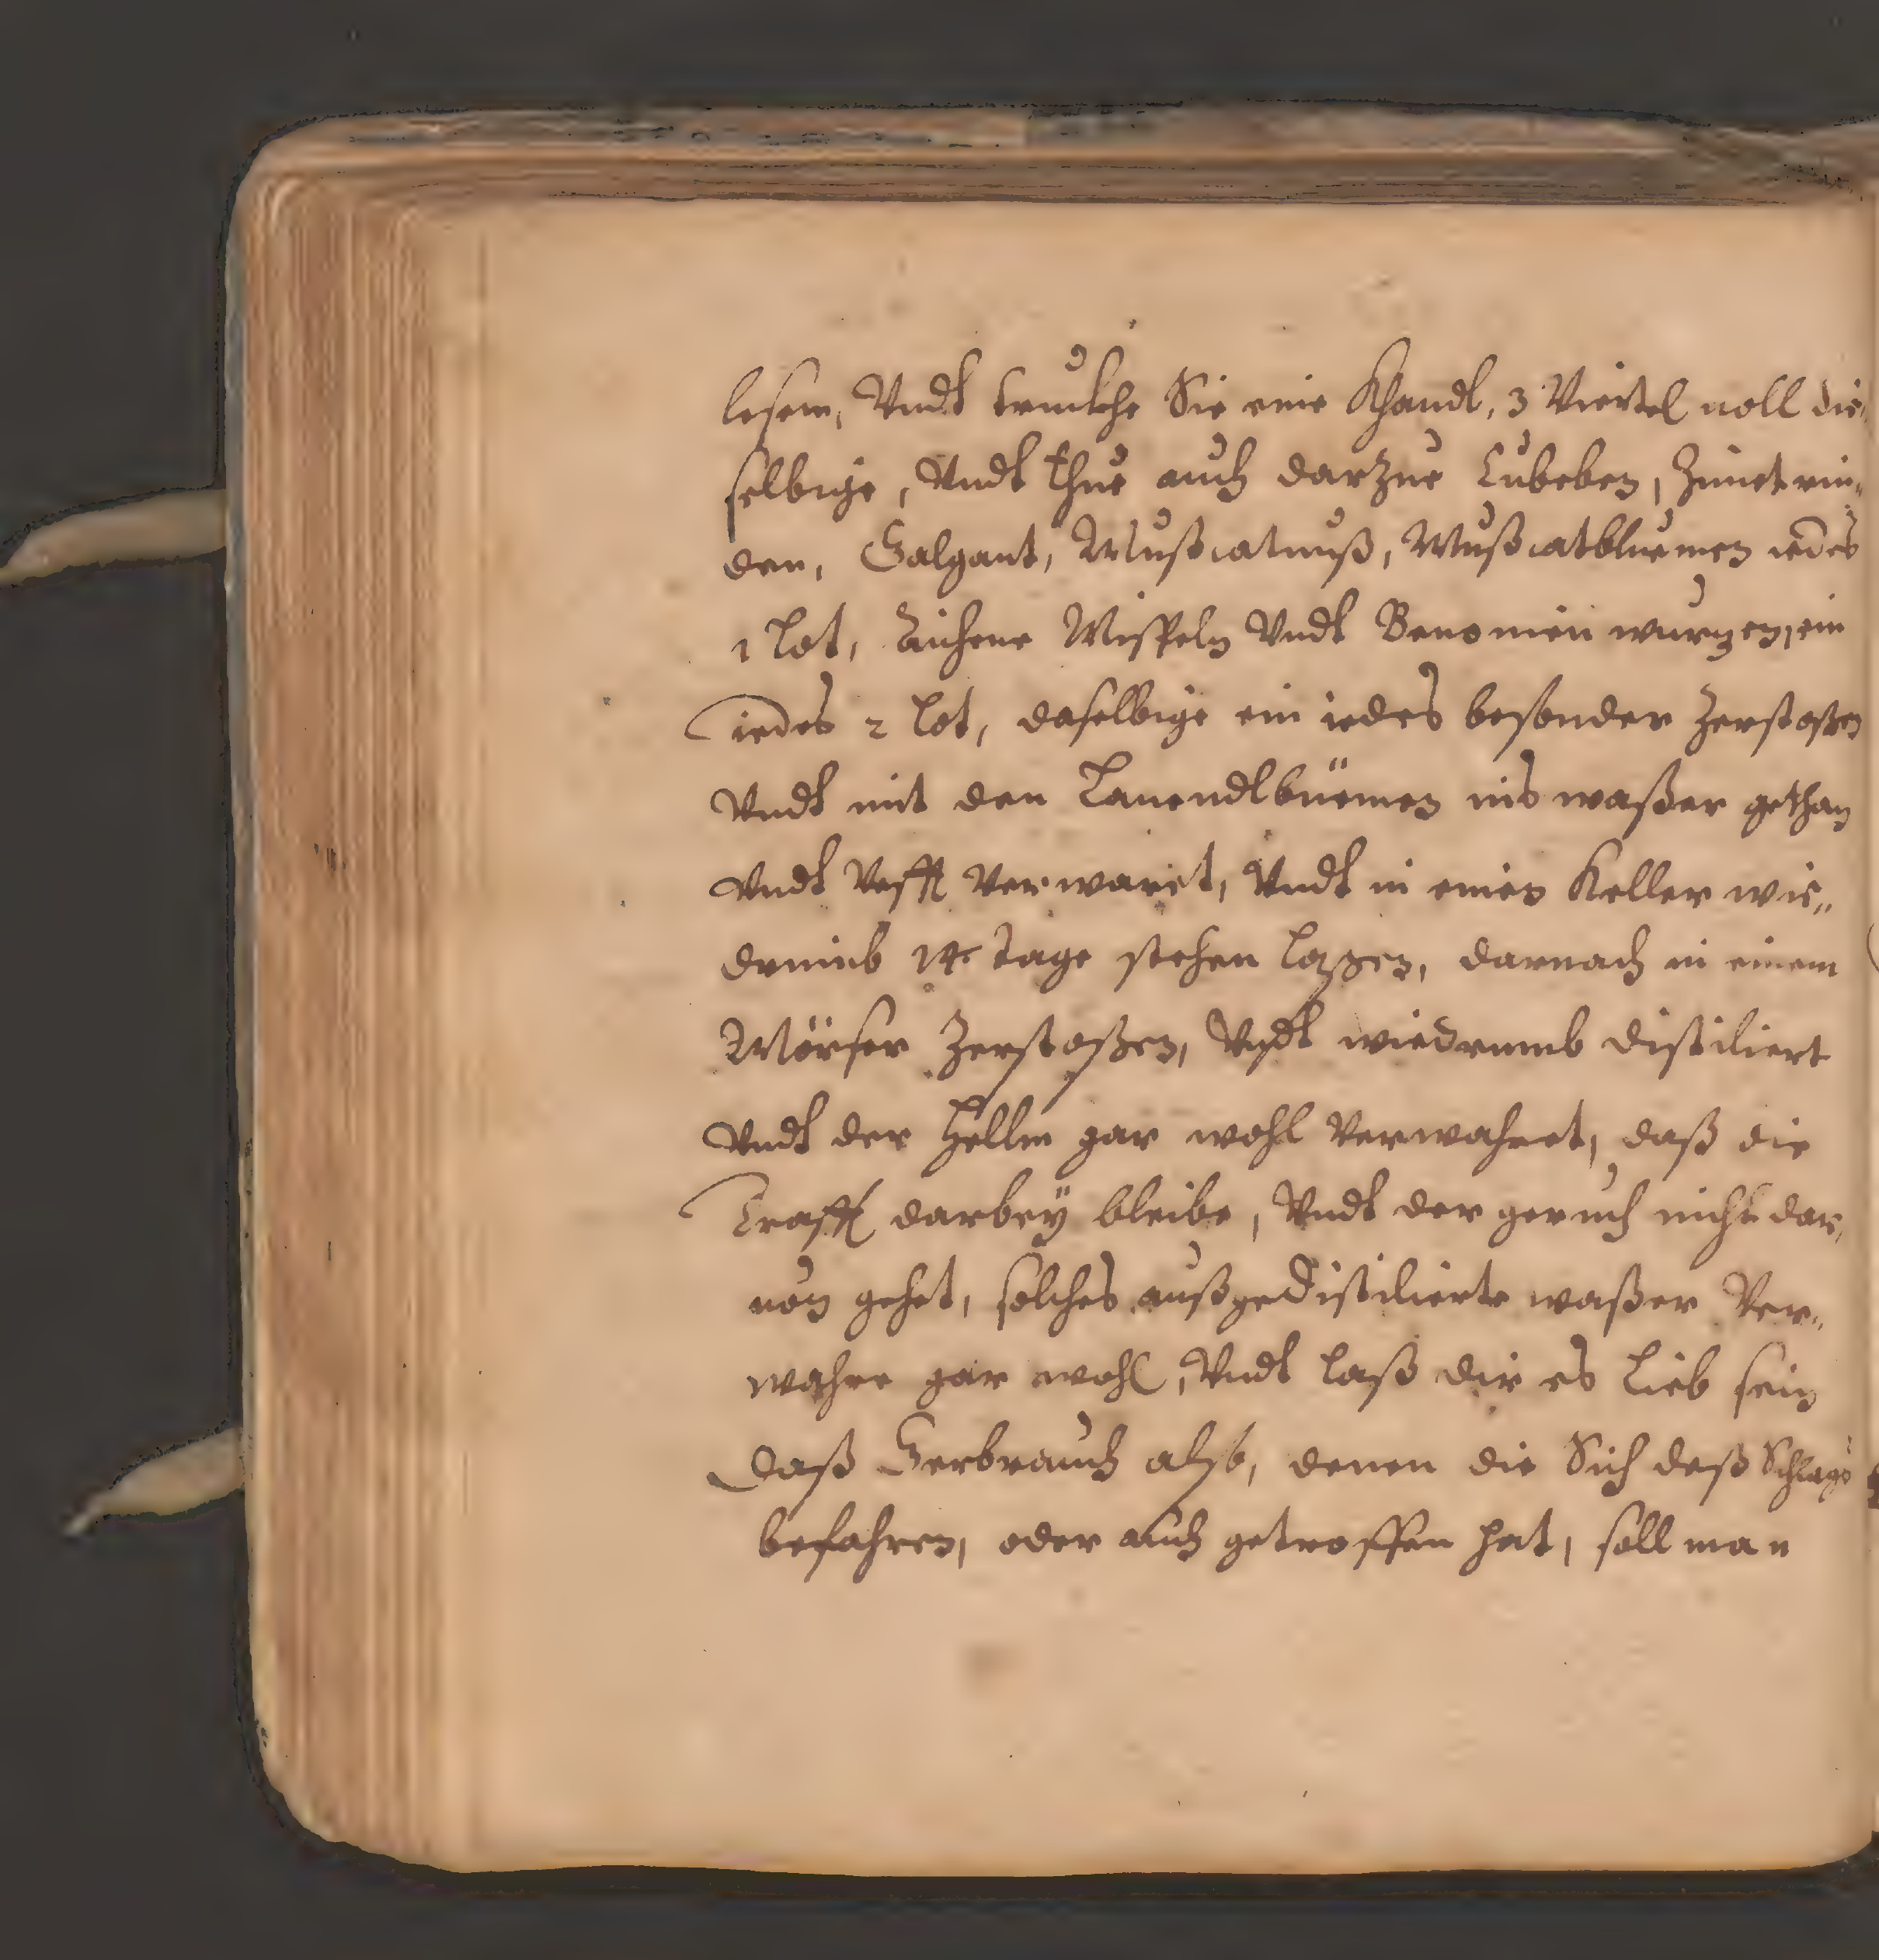 lesen, Vndt trukche Sie eine Khandl, 3 Viertel voll die„
selbige, Vndt thue auch darzue Cubeben, Zimetrin„
den, Galgant, Mußcatnuß, Mußcatbluemen iedes
1 lot, Aichene Mispeln Vndt Benonien wurzen, ein
iedes 2 lot, daselbige ein iedes besonder Zerstoßen
Vndt mit den Lauendlbüemen ins waßer gethan
Vndt Vesst Verwaret, Vndt in einen Keller wie„
drumb 14 tage stehen laßen, darnach in einem
Mörser Zerstoßen, Vndt wiedrumb distiliert
Vndt der Hellm gar wohl Verwahret, daß die
Crafft darbeÿ bleibe, Vndt der geruch nicht dar„
uon gehet, solches außgedistilierte waßer Ver„
wahre gar wohl, Vndt laß dir es Lieb sein
Daß Gerbrauch also, denen die Sich deß Schlags
befahren, oder auch getroffen hat, soll man